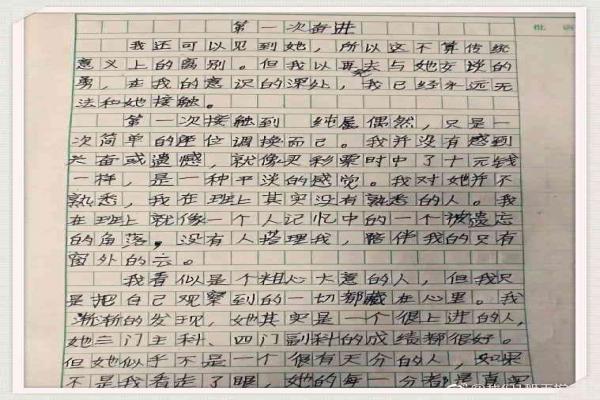 第一次奋进
批语
我还可以见到她，所以这不算传统
意义上的离别。但我以再无与她交谈的
勇，在我的意识的深处，我已经永远无
法和她接触。
第一次接触到 纯属偶然，只是一
次简单的座位调换而已。我并没有感到
兴奋或遗憾，就像买彩票时中了十元钱
一样，是一种平淡的感觉。我对她并不
熟悉，我在班上其实没有熟悉的人。我
在班上就像一个人记忆中的一个被遗忘
的角落，没有人搭理我，陪伴我的只有
窗外的云。
我看似是个粗心大意的人，但我只
是把自己观察到的一切都藏在心里。我
渐渐的发现，她其实是一个很上进的人，
她三门主科、四门副科的成绩都很好。
但她似乎不是一个很有天分的人，如果
不是我看走了眼，她的每一分都是真实